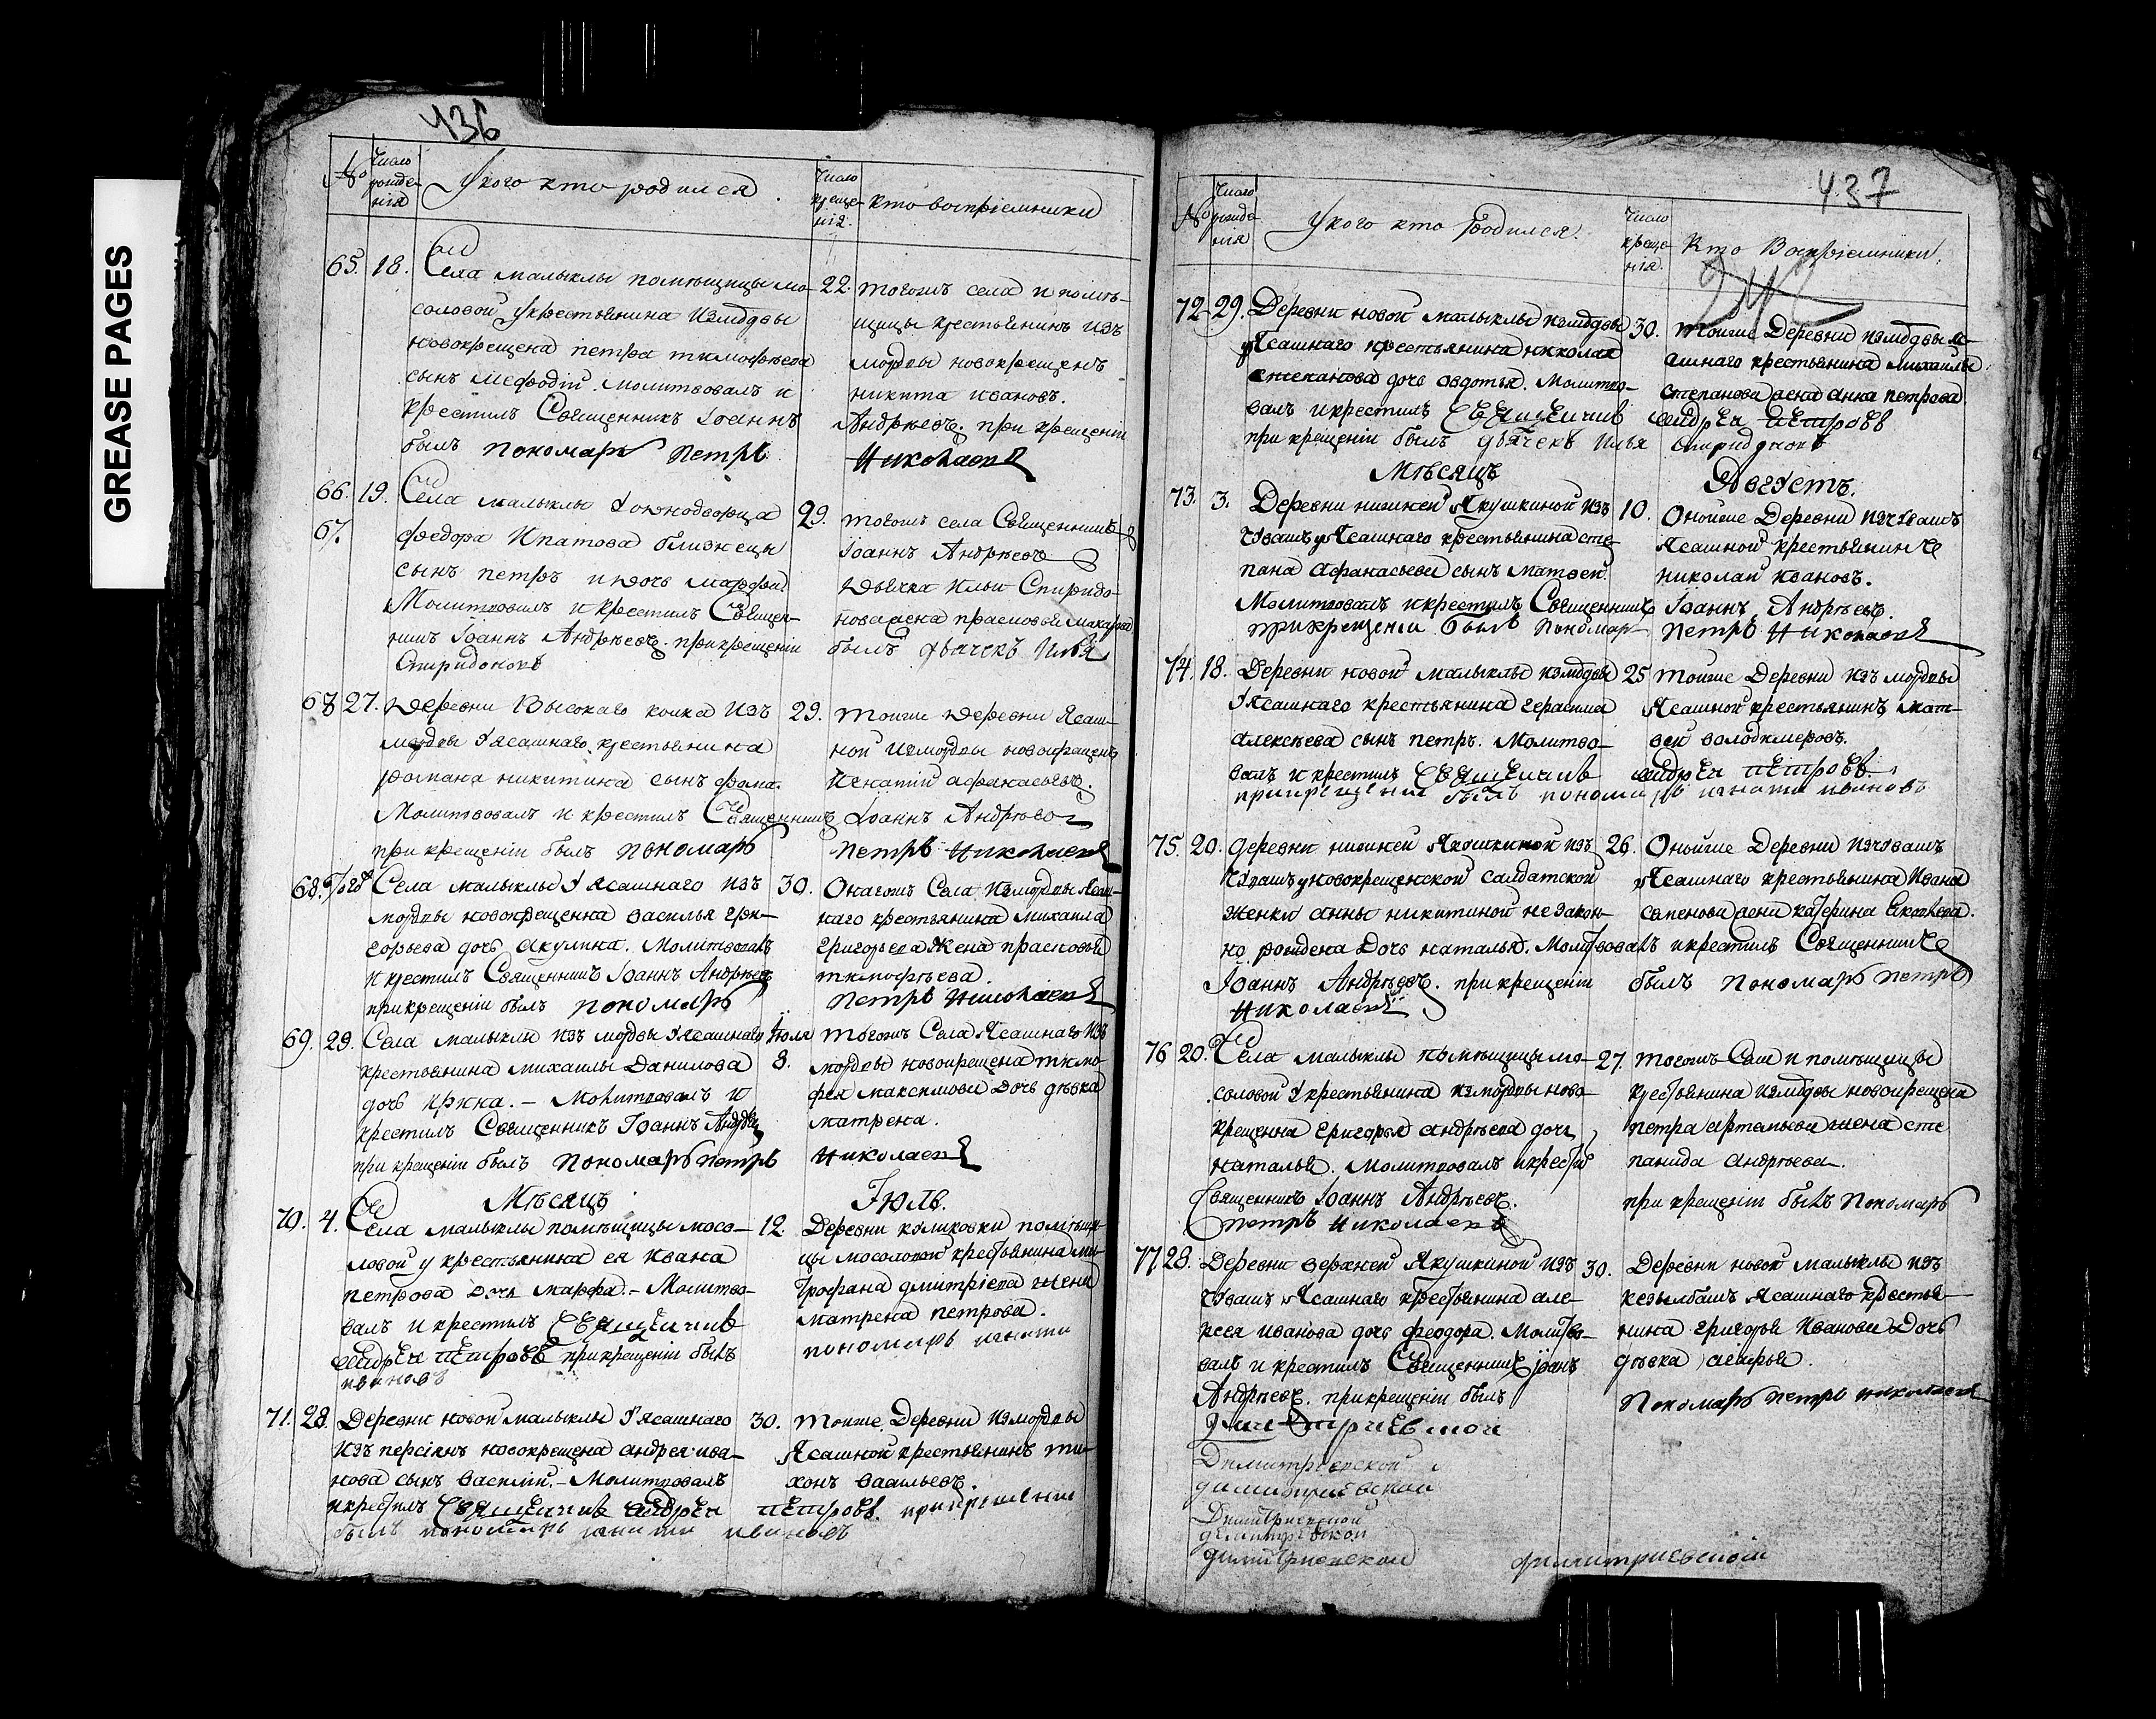 GREASE PAGES
436
№
Число рожде-нія
У кого кто родился
Число креще-нія
Кто воспріемники
65. 18. Села малыклы помѣщицы мо-
соловой у крестьянина измордвы
новокрещена петра тимофѣева
сынъ мефодій. молитвовалъ и
крестилъ Священникъ Іоаннъ
былъ пономарь Петръ
22. тогожъ села и помѣ-
щицы крестьянинъ изъ
мордвы новокрещенъ
никита ивановъ.
Андрѣевъ. при крещеніи
Николаевъ
66. 19. Села малыклы У однодворца
67. федора Ипатова близнецы
сынъ петръ и дочь марфа.
Молитвовалъ и крестилъ Священ-
никъ Іоаннъ Андрѣевъ. при крещеніи
Спиридоновъ
29. тогожъ села Священникъ
Іоаннъ Андрѣевъ
дьячка Ильи Спиридо-
нова жена прасковья
былъ дьячекъ Илья
68 27. Деревни Высокаго колка изъ
мордвы У ясашнаго крестьянина
романа никитина сынъ фома.
Молитвовалъ и крестилъ Священникъ
при крещеніи былъ пономарь
29. тоиже Деревни Ясаш-
ной измордвы новокрещенъ
Игнатій афанасьевъ.
Іоаннъ Андрѣевъ
Петръ Николаевъ
68. Села малыклы У ясашнаго изъ
мордвы новокрещенна василья гри-
горьева дочь акулина. Молитвовалъ
и крестилъ Священникъ Іоаннъ Андрѣевъ
при крещеніи былъ пономарь
30. Онагожъ Села измордвы Ясаш-
наго крестьянина михаила
григорьева жена прасковья
тимофѣева.
Петръ Николаевъ
69. 29. Села малыклы изъ мордвы У ясашнаго
крестьянина михаилы Данилова
дочь ирина. – Молитвовалъ и
крестилъ Священникъ Іоаннъ Андрѣевъ
при крещеніи былъ пономарь петръ
Іюля
3. тогожъ Села Ясашнаго изъ
мордвы новокрещена тимо-
фея максимова дочь дѣвка
матрена.
Николаевъ
Мѣсяцъ Іюль.
70. 4. Села малыклы помѣщицы мосо-
ловой у крестьянина ея ивана
петрова дочь марфа. – Молитво-
валъ и крестилъ Священникъ
Андрей Петровъ при крещеніи былъ
ивановъ
12. Деревни куликовки помѣщи-
цы мосоловой крестьянина ми-
трофана дмитріева жена
матрена петрова.
пономарь игнати
71. 28. Деревни новой малыклы У ясашнаго
изъ персіянъ новокрещена андрея ива-
нова сынъ василій. – Молитвовалъ
и крестилъ Священникъ Андрей
былъ пономарь игнати ивановъ
30. тоиже Деревни измордвы
Ясашной крестьянинъ ти-
хонъ васильевъ.
Петровъ. при крещеніи
437
№
Число рожде-нія
У кого кто родился.
Число креще-нія.
Кто Воспріемники.
72. 29. Деревни новой малыклы измордвы
у Ясашнаго крестьянина николая
степанова дочь авдотья. Молитво-
валъ и крестилъ Священникъ
при крещеніи былъ дьячекъ Илья
30. тоиже Деревни измордвы яс-
ашнаго крестьянина михаилы
степанова жена анна петрова
Андрей Петровъ
Спиридоновъ
Мѣсяцъ Августъ.
73. 3. Деревни нижней Якушкиной изъ
Чувашъ у Ясашнаго крестьянина сте-
пана афанасьева сынъ матвей.
Молитвовалъ и крестилъ Священникъ
при крещеніи былъ пономарь
10. Оноиже Деревни изчувашъ
Ясашной крестьянинъ
николай ивановъ.
Іоаннъ Андрѣевъ.
Петръ Николаевъ
74. 18. Деревни новой малыклы измордвы
У Ясашнаго крестьянина герасима
алексѣева сынъ петръ. Молитво-
валъ и крестилъ Священникъ
при крещеніи былъ пономарь игнати ивановъ
25 тоиже Деревни изъ мордвы
Ясашной крестьянинъ мат-
вей володимеровъ.
Андрей Петровъ.
75. 20. деревни нижней Якошкиной изъ
Чувашъ у новокрещенской салдатской
женки анны никитиной незакон-
но рождена дочь наталья. Молитвовалъ и крестилъ Священникъ
Іоаннъ Андрѣевъ. при крещеніи былъ пономарь петръ
Николаевъ
26. Оноиже Деревни изчувашъ
у Ясашнаго крестьянина Ивана
семенова жена катерина
76 20. Села малыклы помѣщицы мо-
соловой У крестьянина измордвы ново-
крещенна григорья андрѣева дочь
наталья. Молитвовалъ и крести
Священникъ Іоаннъ Андрѣевъ.
петръ Николаевъ
27. тогожъ Села и помѣщицы
крестьянина измордвы новокрещена
петра артемьева жена сте
панида андрѣева.
при крещеніи былъ пономарь
77 28. Деревни верхней Якушкиной изъ
Чувашъ у Ясашнаго крестьянина але-
ксея иванова дочь феодора. Молитво-
валъ и крестилъ Священникъ Іоанъ
Андрѣевъ. при крещеніи былъ
30. Деревни новой малыклы изъ
кезылбашъ Ясашнаго крестья-
нина григорья Иванова дочь
дѣвка марья.
Пономарь петръ николаевъ
Димитріевской
димитріевской
Димитріевской
димитріевской
димитріевской
димитріевской